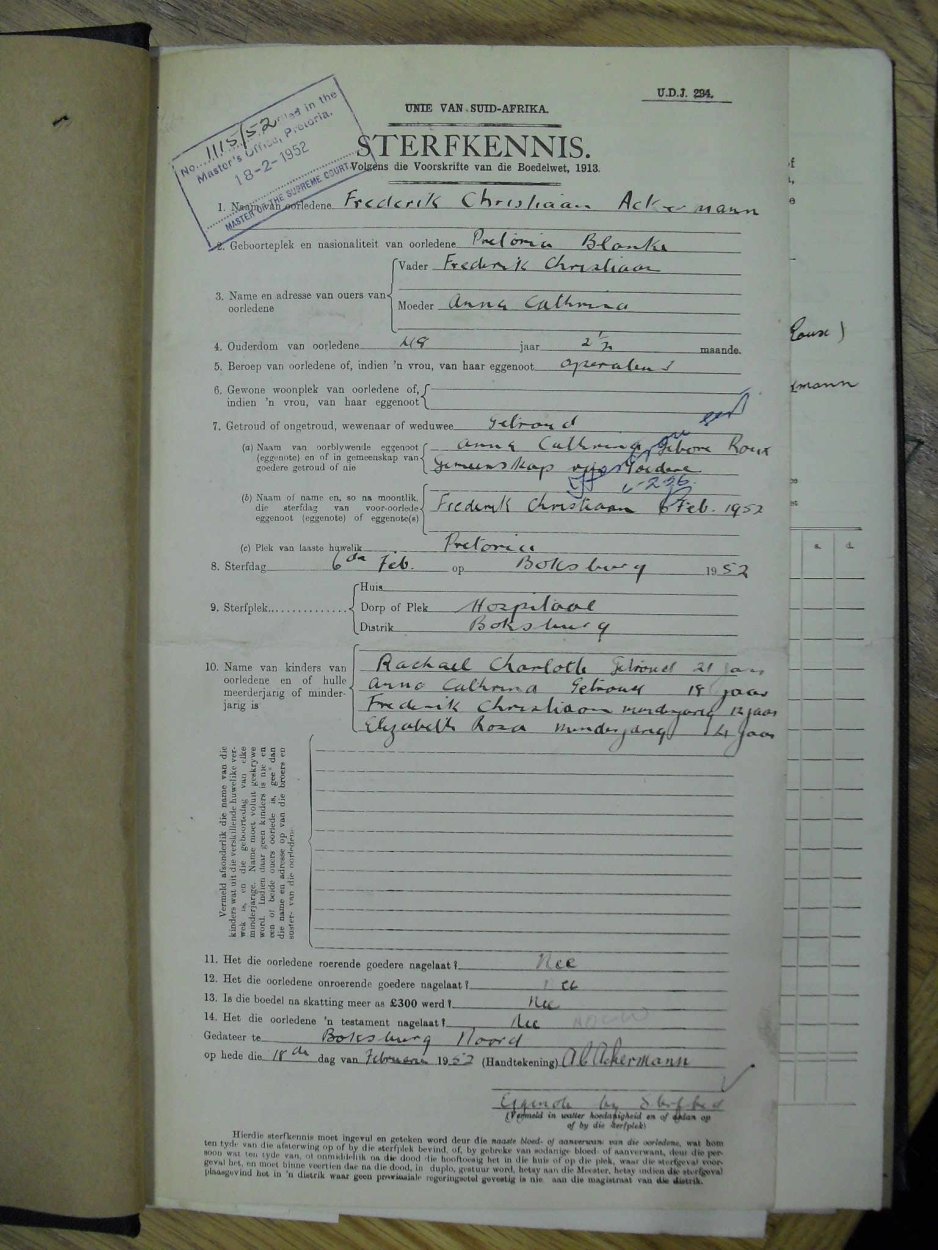 U.D.J. 294.
UNIE VAN SUID-AFRIKA.
No. 1115/52 Filed in the
Master's Office, Pretoria.
18-2-1952
MASTER OF THE SUPREME COURT
STERFKENNIS.
Volgens die Voorskrifte van die Boedelwet, 1913.
1. Naam van oorledene Frederik Christiaan Ackermann
2. Geboorteplek en nasionaliteit van oorledene Pretoria Blanke
3. Name en adresse van ouers van oorledene
Vader Frederik Christiaan
Moeder Anna Cathrina
4. Ouderdom van oorledene 48 jaar 2½ maande.
5. Beroep van oorledene of, indien 'n vrou, van haar eggenoot
6. Gewone woonplek van oorledene of,
indien 'n vrou, van haar eggenoot
7. Getroud of ongetroud, wewenaar of weduwee Getroud
(a) Naam van oorblywende eggenoot
(eggenote) en of in gemeenskap van
goedere getroud of nie
Anna Cathrina Gebore Roux
Gemeenskap van Goedere
6-2-36
(b) Naam of name en, so na moontlik,
die sterfdag van voor-oorlede
eggenoot (eggenote) of eggenote(s)
Frederik Christiaan 6 Feb. 1952
(c) Plek van laaste huwelik Pretoria
8. Sterfdag 6de Feb. op Boksburg 1952
9. Sterfplek
Huis
Dorp of Plek Hospitaal
Distrik Boksburg
10. Name van kinders van
oorledene en of hulle
meerderjarig of minder-
jarig is
Rachael Charlotte Getroud 21 jaar
Anna Cathrina Getroud 18 jaar
Frederik Christiaan minderjarig 12 jaar
Elizabeth Rosa minderjarig 4 jaar
Vermeld afsonderlik die name van die
kinders wat uit die verskillende huwelike ver-
wek is, en die geboortedag van elke
minderjarige. Name moet voluit geskrywe
word. Indien daar geen kinders is nie en
een of beide ouers oorlede is, gee dan
die name en adresse op van die broers en
susters van die oorledene.
11. Het die oorledene roerende goedere nagelaat? Nee
12. Het die oorledene onroerende goedere nagelaat? Nee
13. Is die boedel na skatting meer as £300 werd? Nee
14. Het die oorledene 'n testament nagelaat? Nee
Gedateer te Boksburg Noord
op hede die 18de dag van Februarie 1952 (Handtekening) A C Ackermann
(Vermeld in watter hoedanigheid en of aldan op
of by die sterfplek)
Hierdie sterfkennis moet ingevul en geteken word deur die naaste bloed- of aanverwant van die oorledene, wat hom
ten tyde van die afsterwing op of by die sterfplek bevind, of, by gebreke van sodanige bloed- of aanverwant, deur die per-
soon wat ten tyde van, of onmiddellik na die dood die hooftoesig het in die huis of op die plek, waar die sterfgeval voor-
geval het, en moet binne veertien dae na die dood, in duplo, gestuur word, hetsy aan die Meester, hetsy indien die sterfgeval
plaasgevind het in 'n distrik waar geen provinsiale regeringsetel gevestig is nie, aan die magistraat van die distrik.
s. d.